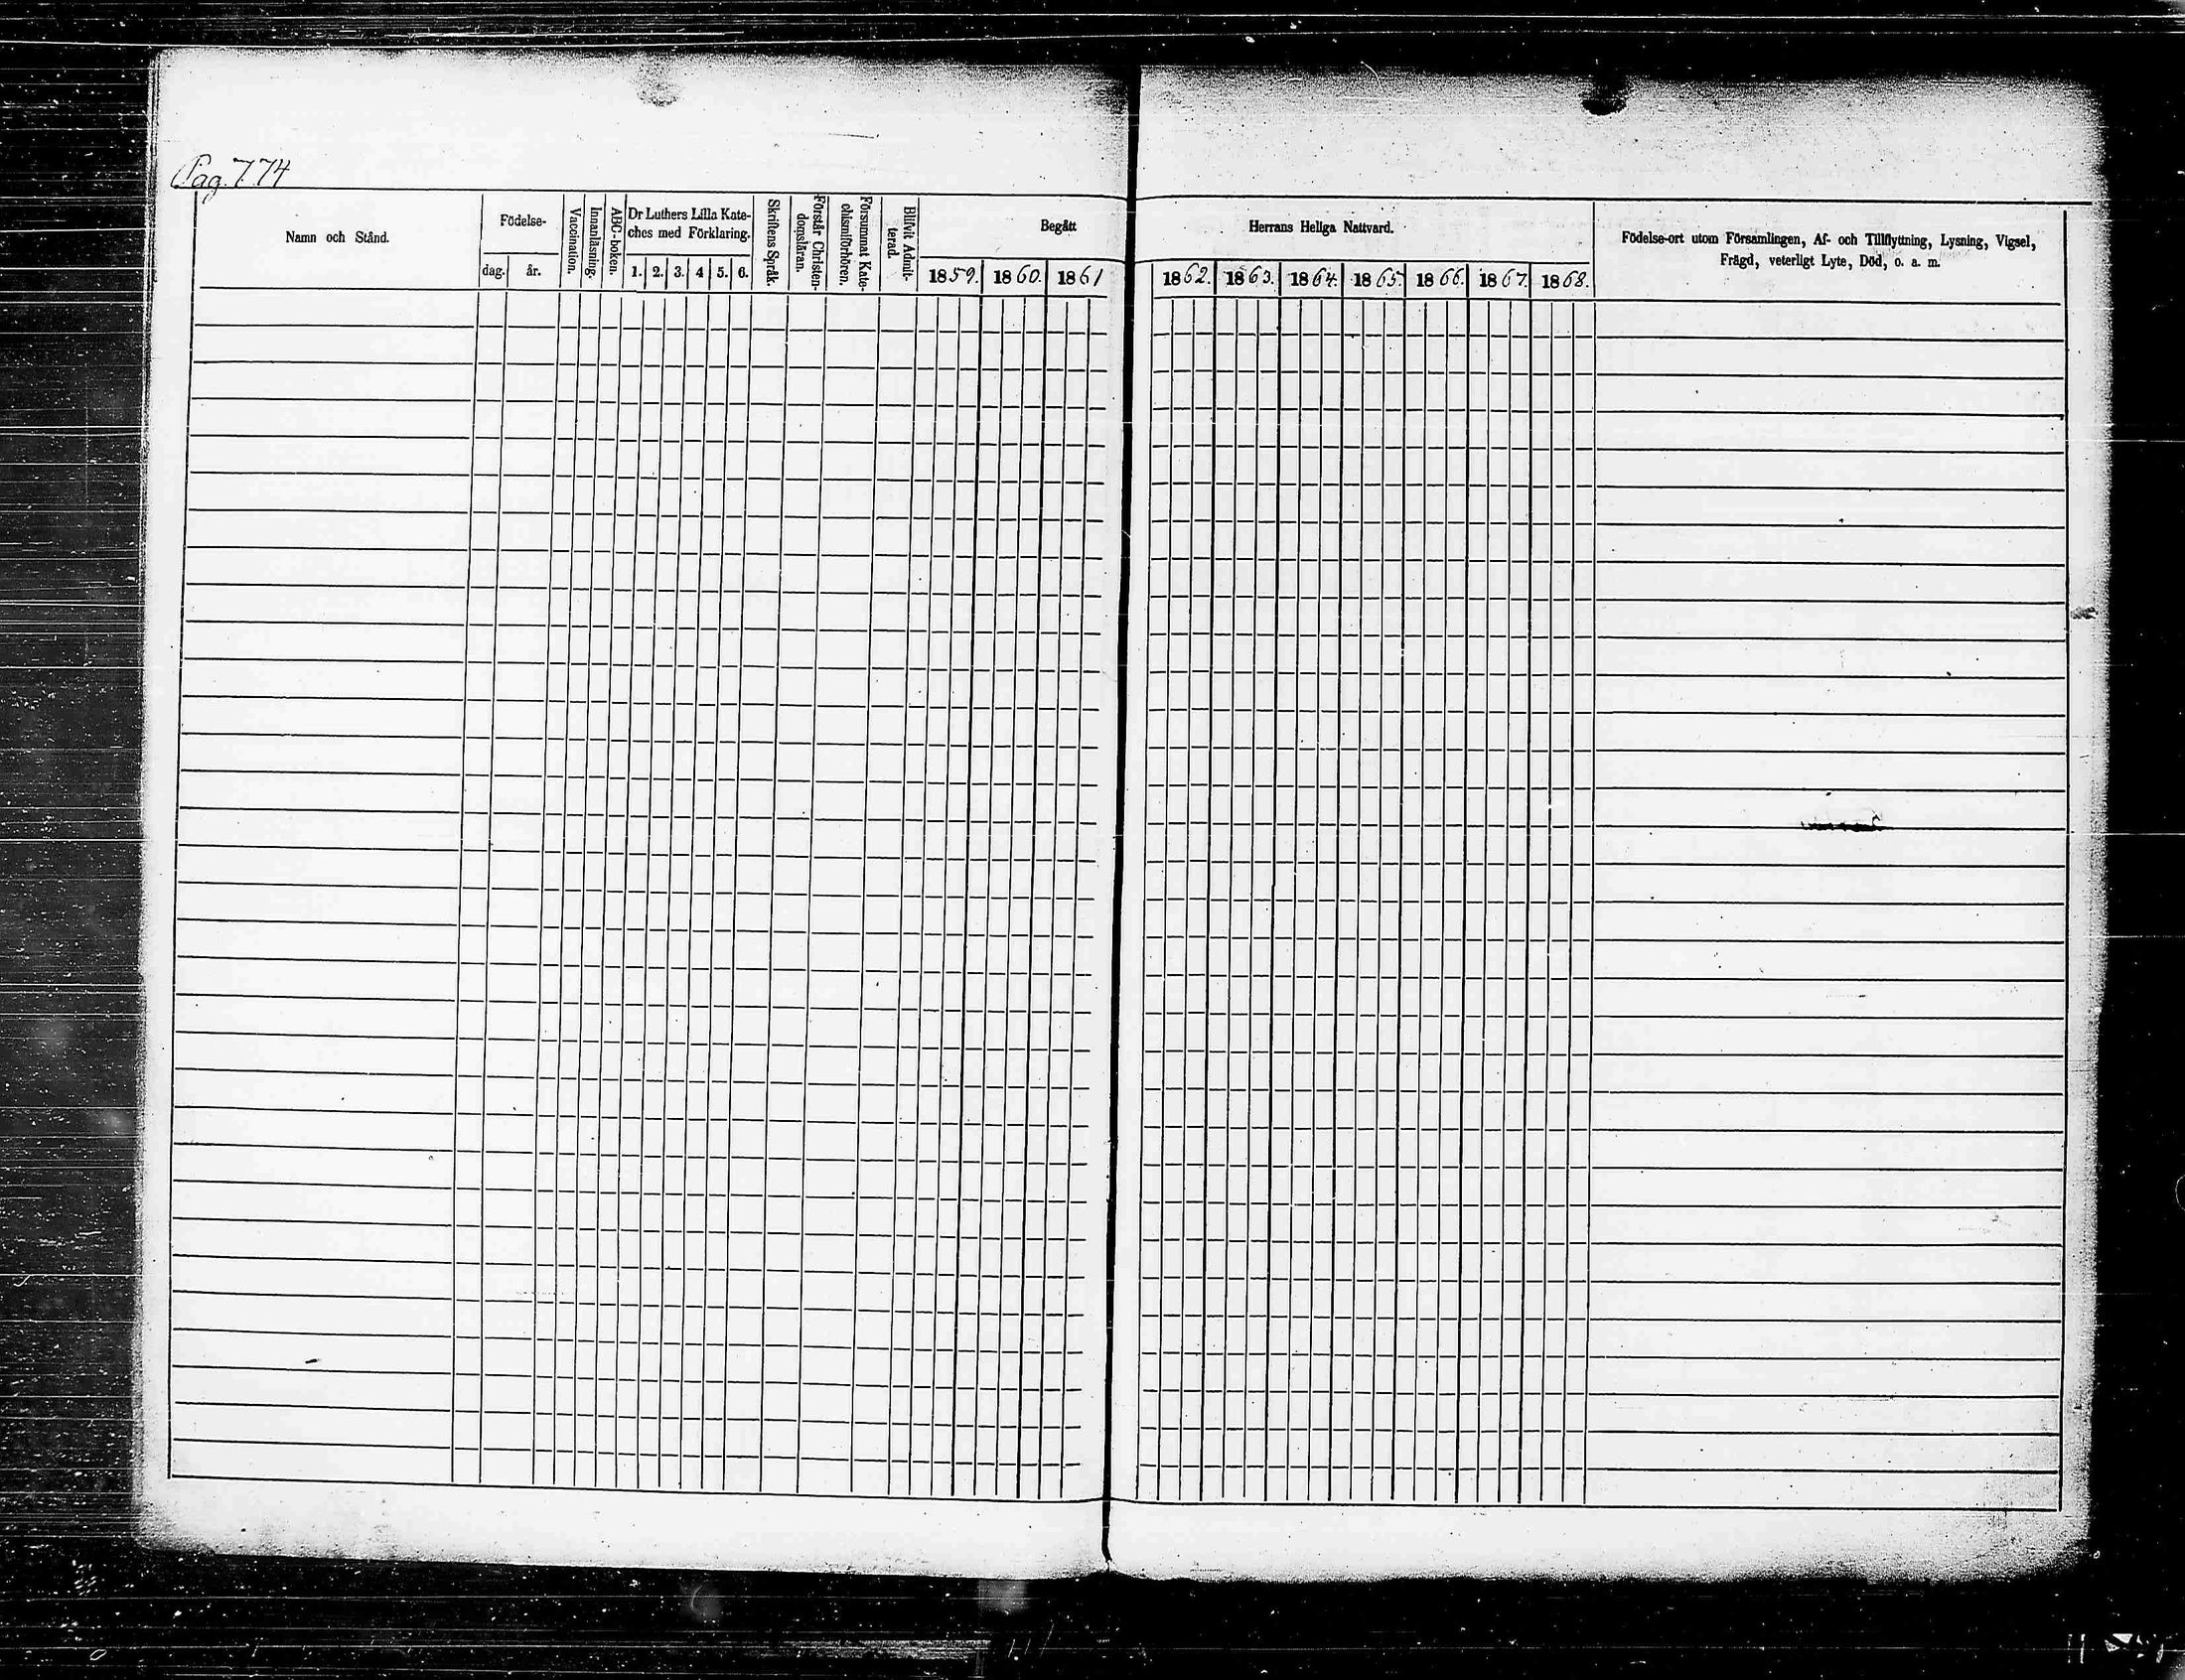 Pag. 774
Namn och Stånd.
Födelse-
dag. år.
Vaccination.
Innanläsning.
ABC-boken.
Dr Luthers Lilla Kate-
ches med Förklaring.
1. 2. 3. 4 5. 6.
Skriftens Språk.
Förstår Christen-
domsläran.
Försummat Kate-
chismiförhören.
Blifvit Admit-
terad.
Begått
1859. 1860. 1861
Herrans Heliga Nattvard.
1862. 1863. 1864. 1865. 1866. 1867. 1868.
Födelse-ort utom Församlingen, Af- och Tillflyttning, Lysning, Vigsel,
Frägd, veterligt Lyte, Död, o. a. m.